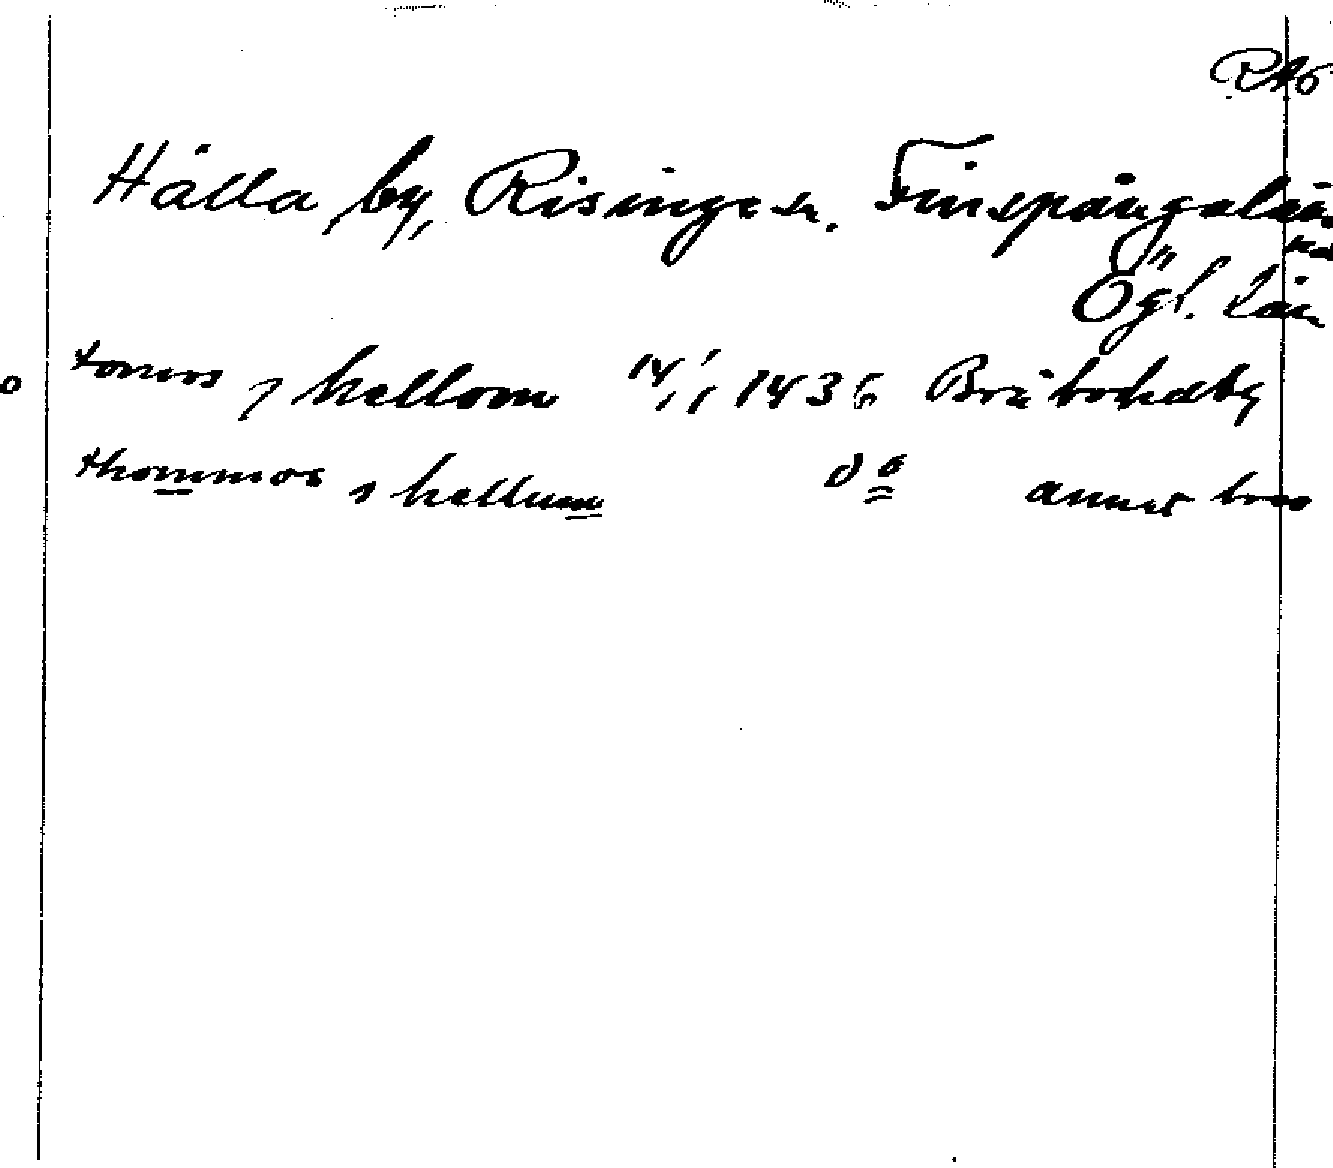 RAö
Hälla by, Risinge sn. Finspångalän
Ögl. Län
tomos j hellom 14/1 1436 Bråbohdby
thommos j hellum do annat brev